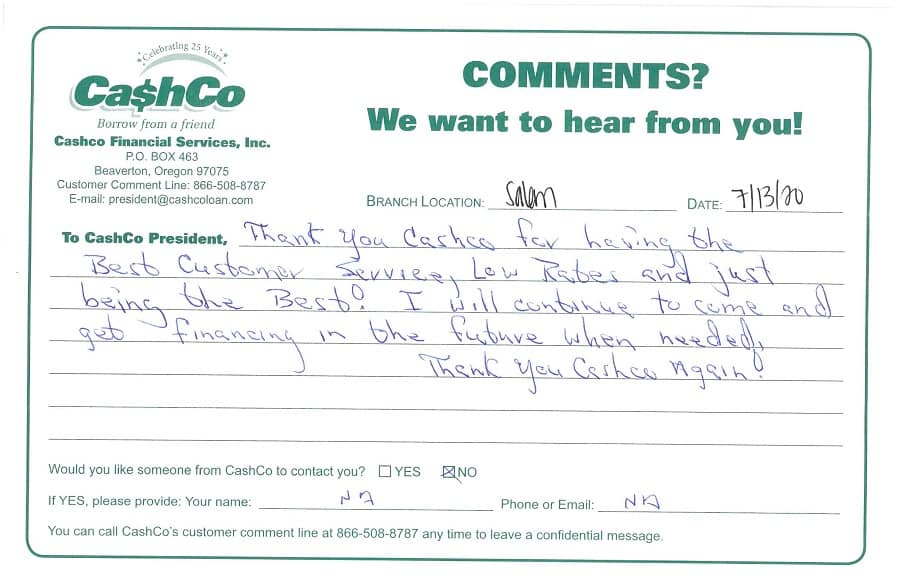 Celebrating 25 Years
Ca$hCo
Borrow from a friend
Cashco Financial Services, Inc.
P.O. BOX 463
Beaverton, Oregon 97075
Customer Comment Line: 866-508-8787
E-mail: president@cashcoloan.com
COMMENTS?
We want to hear from you!
BRANCH LOCATION: Salem DATE: 7/13/20
To CashCo President, Thank you Cashco for having the
Best Customer Service, Low Rates and just
being the Best! I will continue to come and
get financing in the future when needed,
Thank you Cashco Again!
Would you like someone from CashCo to contact you? ☐ YES ☒ NO
If YES, please provide: Your name: NA Phone or Email: NA
You can call CashCo's customer comment line at 866-508-8787 any time to leave a confidential message.